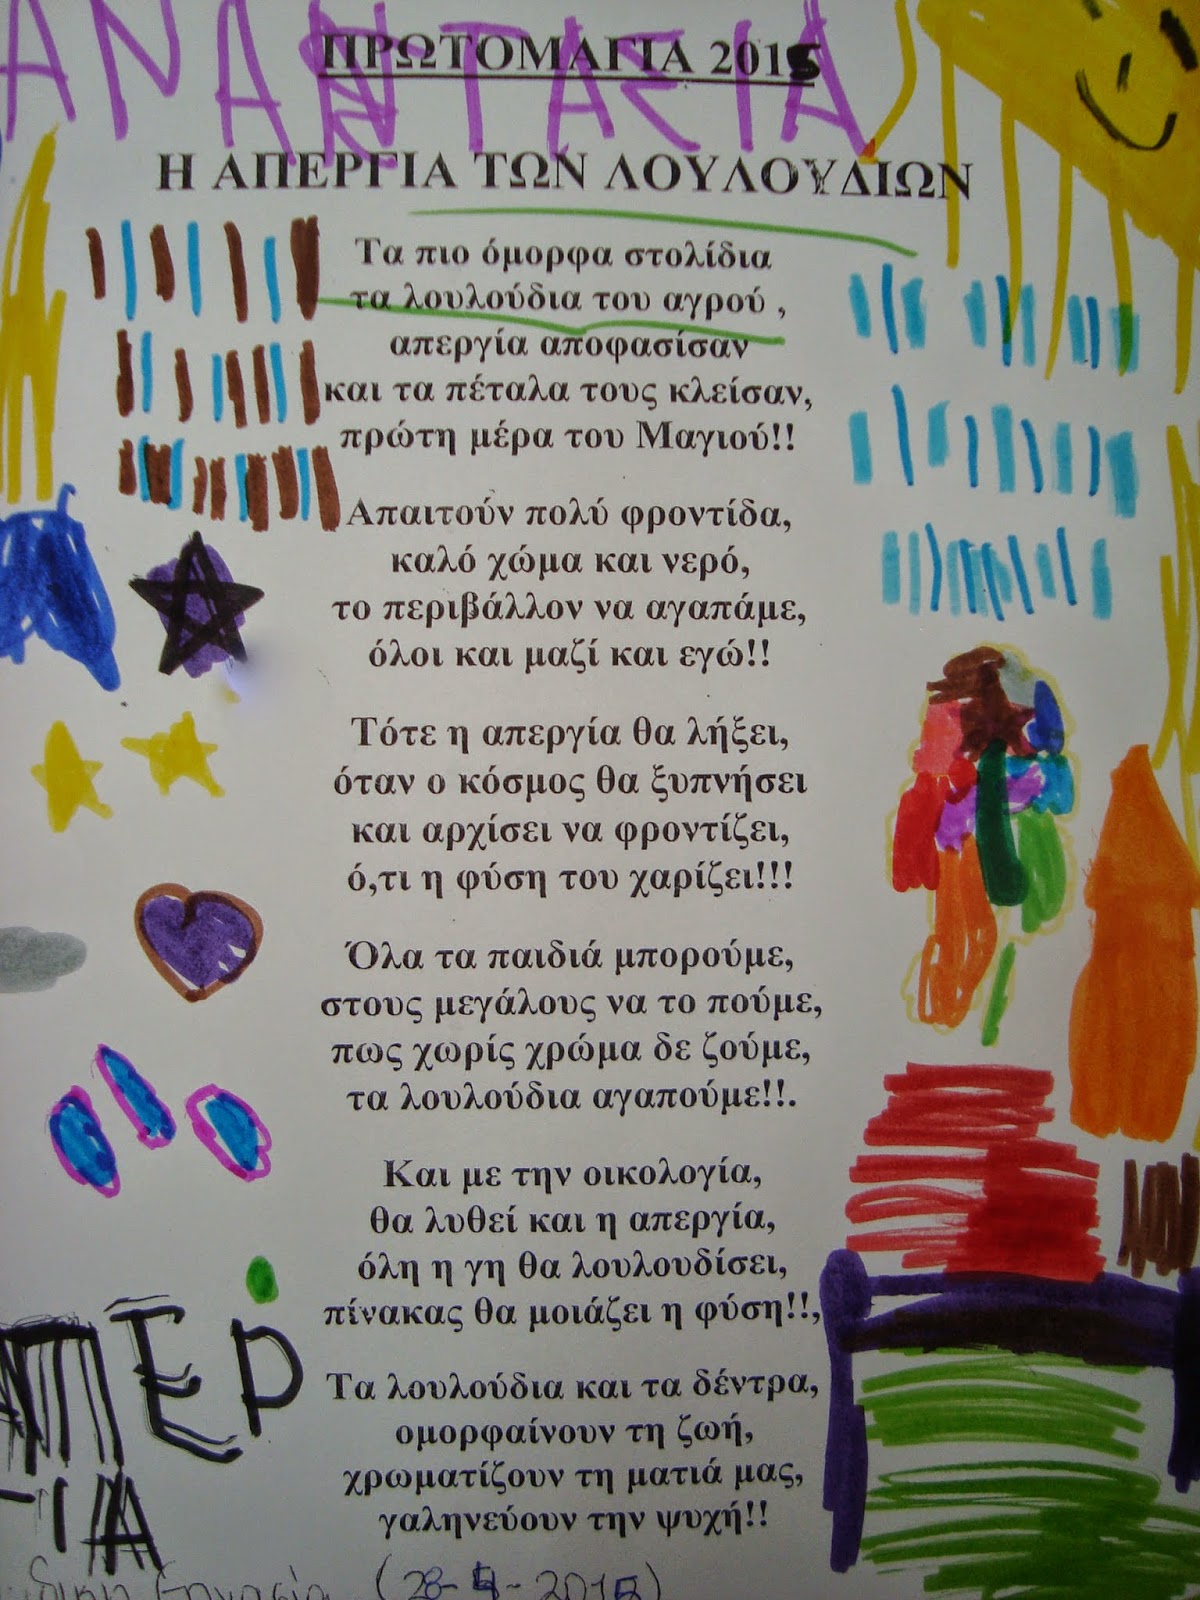 ΑΝΑΝΤΑΣΙΑ
ΠΡΩΤΟΜΑΓΙΑ 2015
Η ΑΠΕΡΓΙΑ ΤΩΝ ΛΟΥΛΟΥΔΙΩΝ
Τα πιο όμορφα στολίδια
τα λουλούδια του αγρού ,
απεργία αποφασίσαν
και τα πέταλα τους κλείσαν,
πρώτη μέρα του Μαγιού!!
Απαιτούν πολύ φροντίδα,
καλό χώμα και νερό,
το περιβάλλον να αγαπάμε,
όλοι και μαζί και εγώ!!
Τότε η απεργία θα λήξει,
όταν ο κόσμος θα ξυπνήσει
και αρχίσει να φροντίζει,
ό,τι η φύση του χαρίζει!!!
Όλα τα παιδιά μπορούμε,
στους μεγάλους να το πούμε,
πως χωρίς χρώμα δε ζούμε,
τα λουλούδια αγαπούμε!!.
Και με την οικολογία,
θα λυθεί και η απεργία,
όλη η γη θα λουλουδίσει,
πίνακας θα μοιάζει η φύση!!,
Τα λουλούδια και τα δέντρα,
ομορφαίνουν τη ζωή,
χρωματίζουν τη ματιά μας,
γαληνεύουν την ψυχή!!
ΑΠΕΡ
ΓΙΑ
(28-4-2015)